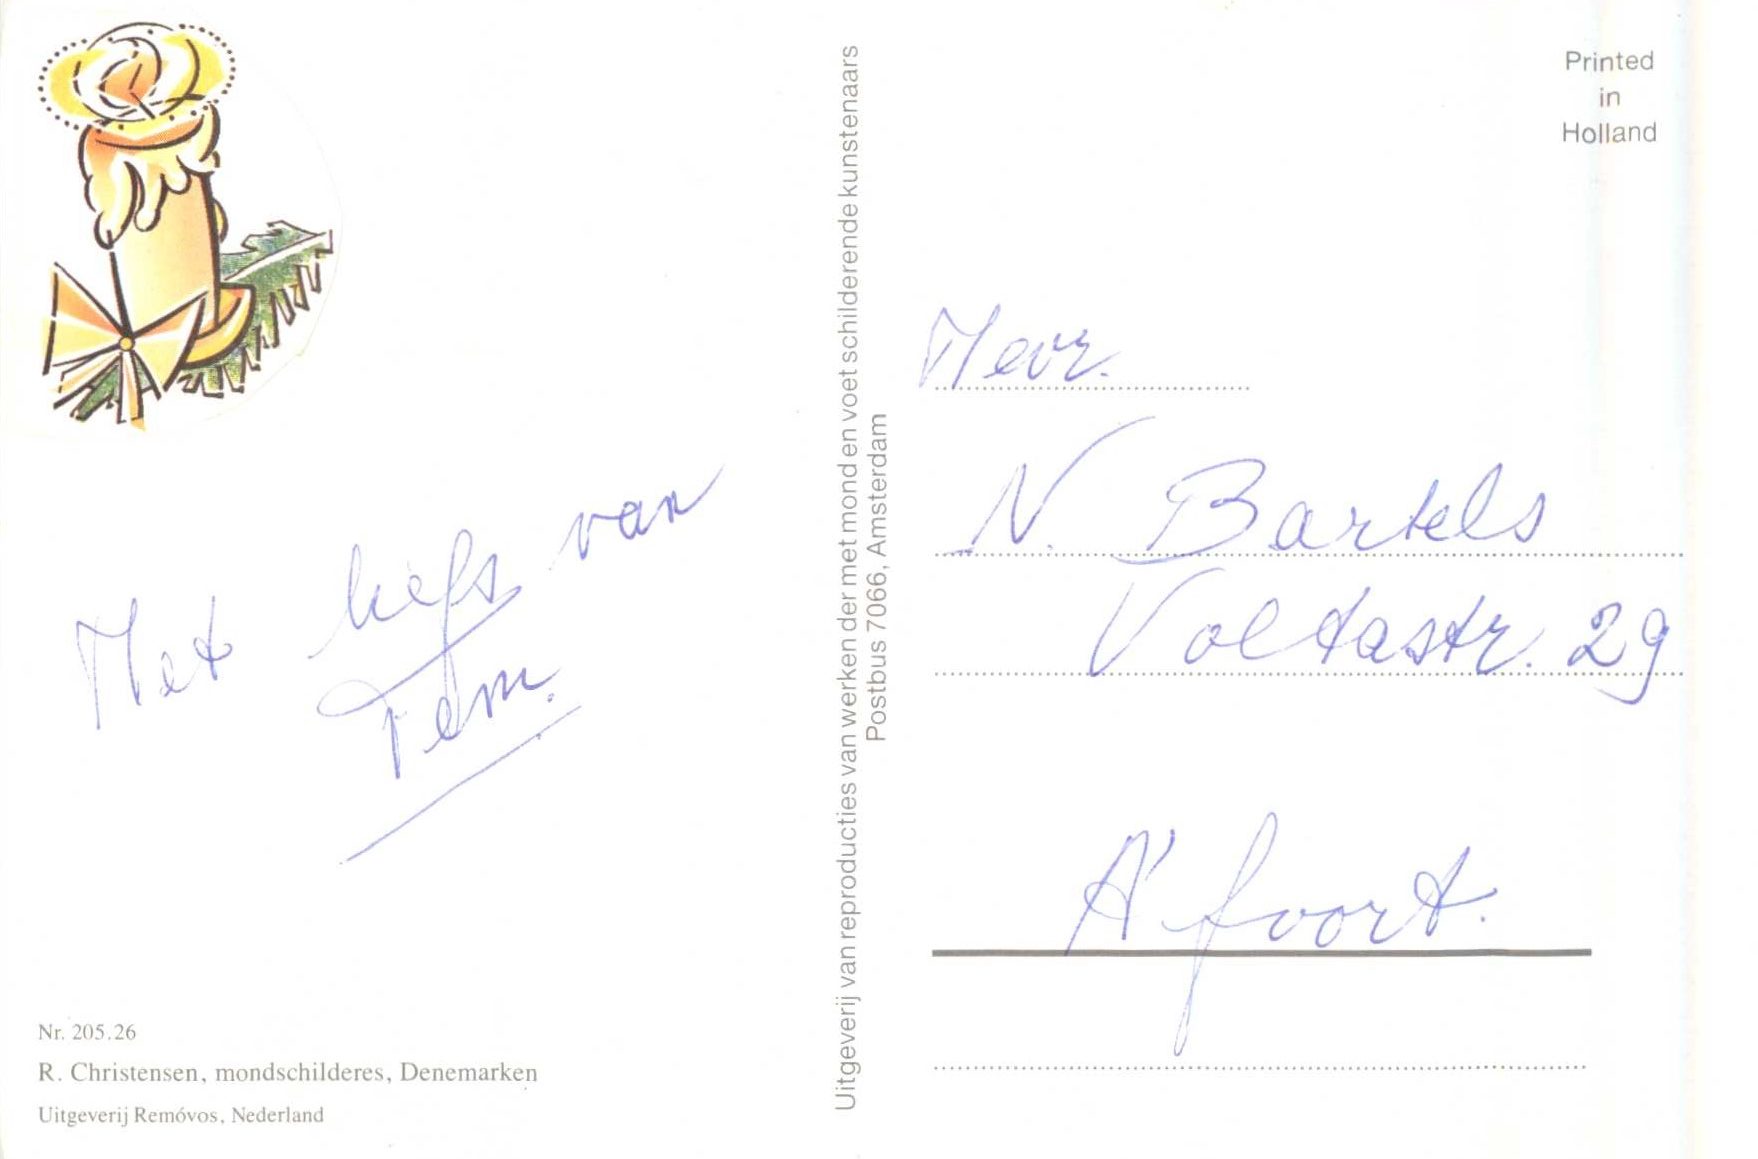 Met liefs van
Fem.
Nr. 205.26
R. Christensen, mondschilderes, Denemarken
Uitgeverij Remóvos, Nederland
Uitgeverij van reproducties van werken der met mond en voet schilderende kunstenaars
Postbus 7066, Amsterdam
Printed
in
Holland
Mevr.
N. Bartels
Voltastr. 29
A'foort.